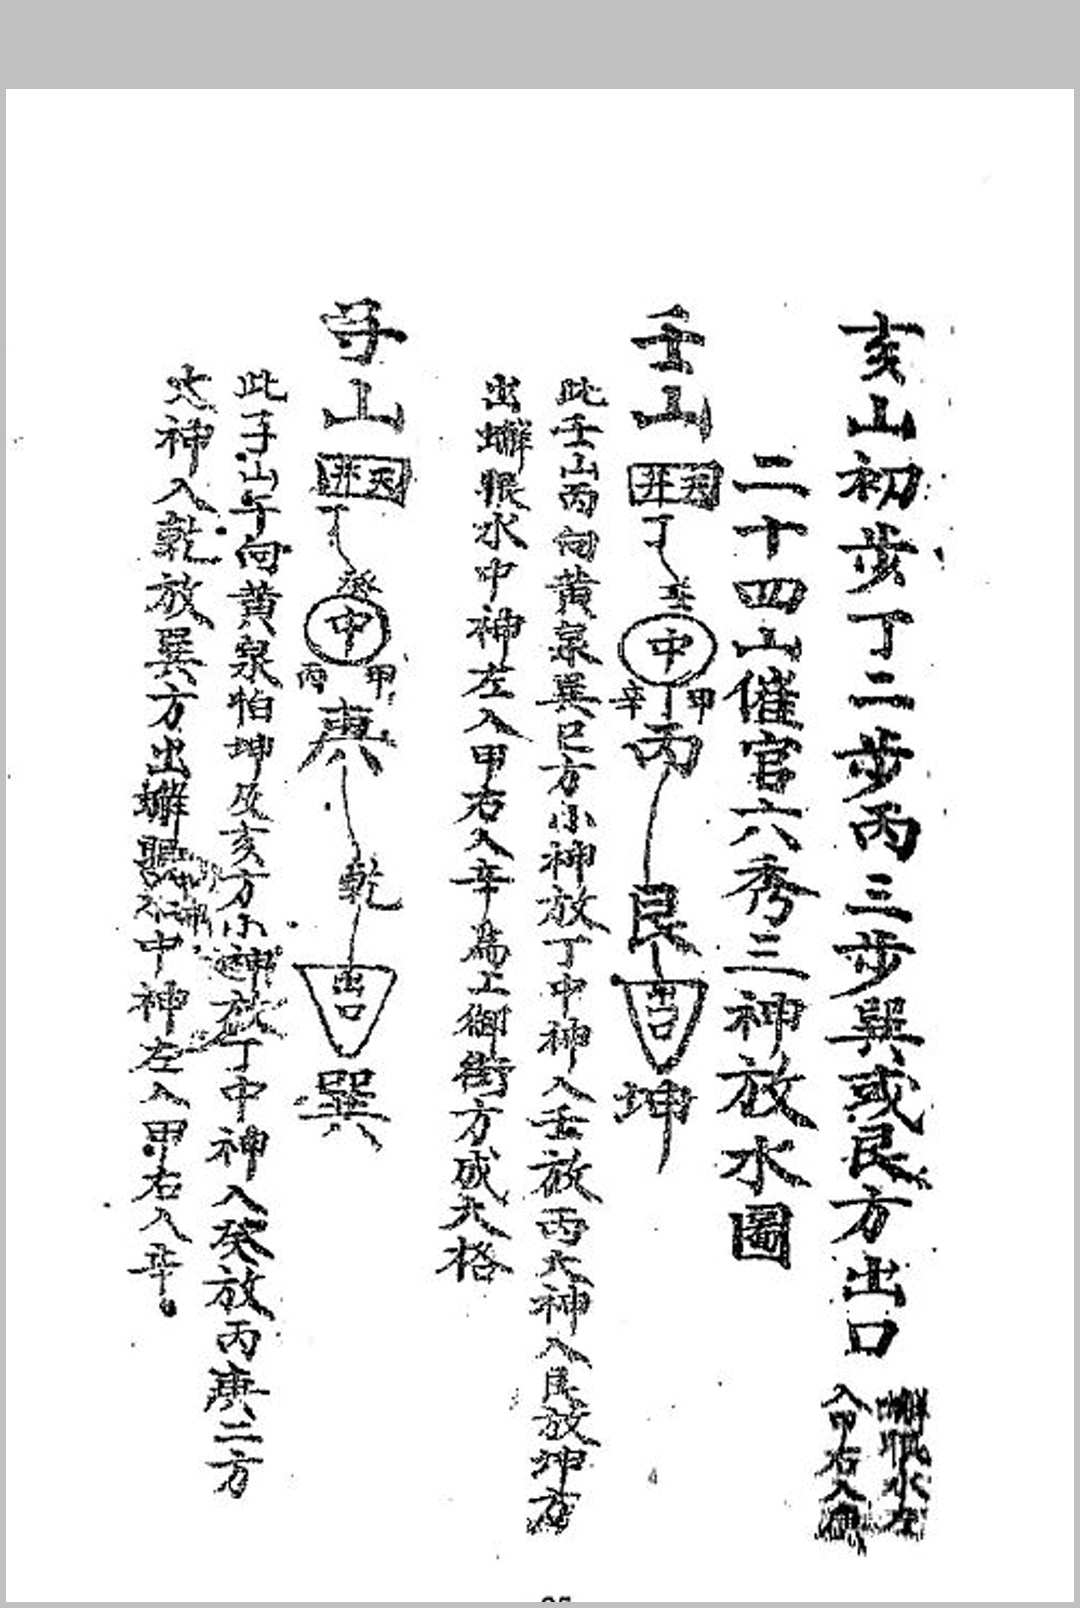 亥山初步丁二步丙三步巽或艮方出口
蠏眼水左
入甲右入庚
二十四山催官六秀三神放水圖
壬山
天井
丁
壬
中
甲
丁
辛
丙
艮
出口
坤
此壬山丙向黄泉巽巳方小神放丁中神入壬放丙大神入艮放坤方
出蠏眼水中神左入甲右入辛為上御街方成大格
子山
天井
丁
癸
中
甲
丙
庚
乾
出口
巽
此子山午向黄泉怕坤及亥方小神放丁中神入癸放丙庚二方
大神入乾放巽方出蠏眼水中神左入甲右入辛。